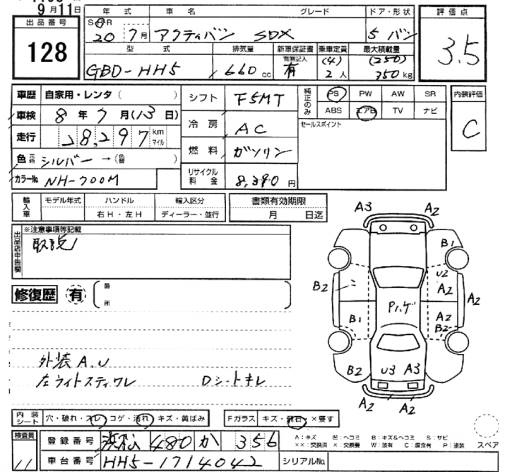 9月11日
出品番号
128
年式 車名 グレード ドア・形状
20 7月 アクティバン SDX 5 バン
型式 排気量 新車保証書 乗車定員 最大積載量
GBD-HH5 660cc 有 (4) 2人 (250) 350kg
評価点
3.5
車歴 自家用・レンタ( )
車検 8年 7月(13日)
走行 28,297 km マイル
色 シルバー→(色 )
カラーNo NH-700M
シフト F5MT
冷房 AC
燃料 ガソリン
リサイクル料金 8,390円
純正のみ
PS PW AW SR
ABS エアB TV ナビ
セールスポイント
内装評価
C
輸入車
モデル年式 ハンドル 輸入区分
右H・左H ディーラー・並行
書類有効期限
月 日迄
出品店申告欄
※注意事項等記載
取説
修復歴 有
外装A.U
左ライトステイワレ Dシートキレ
A3 A2
B1
B2 U2 A2 A2
Pハゲ
B1 A2 B2 A2
B2 U3 A3 B2
A2 A2
内装シート 穴・破れ・スレ・コゲ・汚れ・キズ・黄ばみ
Fガラス キズ・飛石・×要す
A:キズ U:ヘコミ B:キズ&ヘコミ S:サビ
××:交換済 X:交換要 W:波有 C:腐食有 P:塗装 スペア
検査員
11
登録番号 浜松 480 か 356
車台番号 HH5-1714042
シリアルNo.